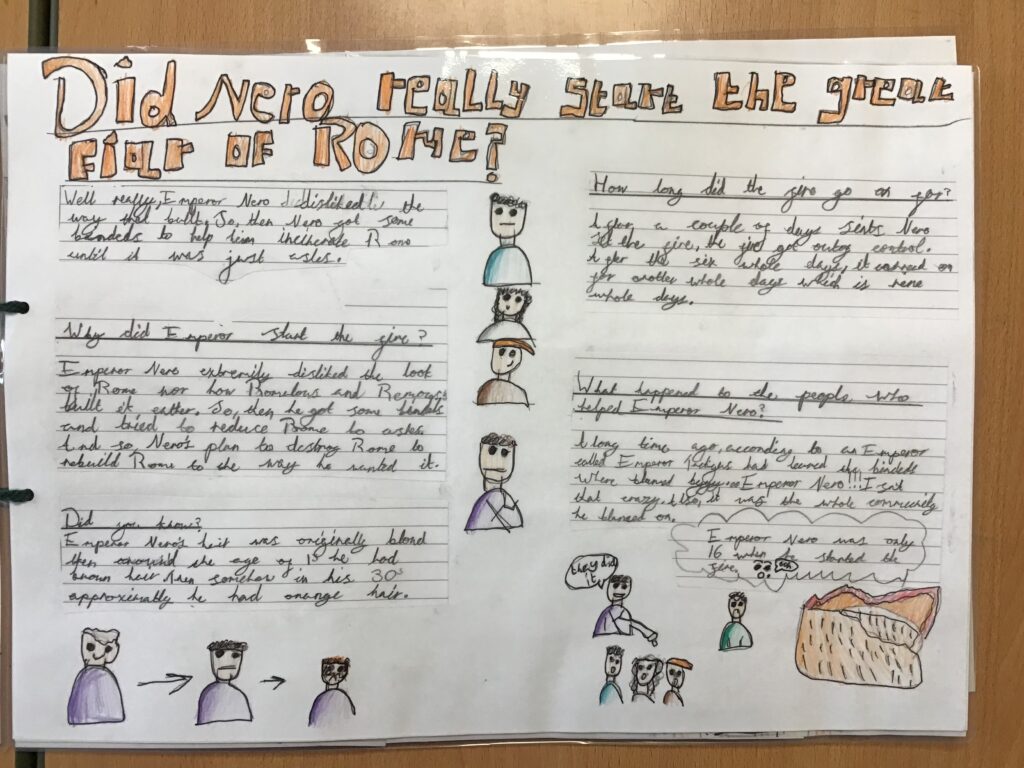 Did Nero really start the great
fiar of Rome?
Well really, Emperor Nero disliked the
way that built. So, then Nero got some
bandeds to help him incinerate Rome
until it was just ashes.
Why did Emperor start the fire?
Emperor Nero extremily disliked the look
of Rome nor how Romulous and
built it eather. So, then he got some bandeds
and tried to reduce Rome to ashes
And so, Nero's plan to destroy Rome to
rebuild Rome to the way he wanted it.
Did you know?
Emperor Nero's hair was originally blond
then around the age of he had
brown hair then in his 30s
approximally he had orange hair.
How long did the fire go on for?
After a couple of days sints Nero
set the fire, the fire got outof control.
After the six whole days, it carreed on
for another whole days which is nene
whole days.
What happened to the people who
helped Emperor Nero?
A long time ago, according to an Emperor
called Emperor had learned the bandeds
where blamed Emperor Nero!!! Isnt
that crazy. Also, it was the whole community
he blamed on.
Emperor Nero was only
16 when he started the
fire.
they did
it!